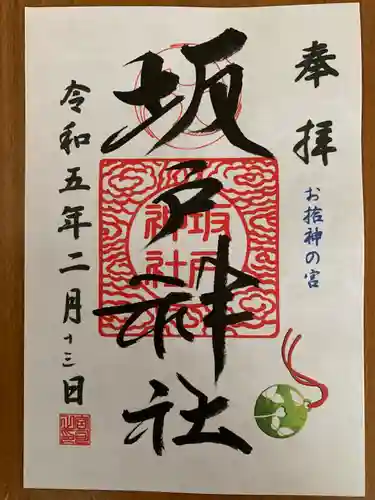 奉拝
お拾神の宮
坂戸神社
坂戸
神社
令和五年二月十三日